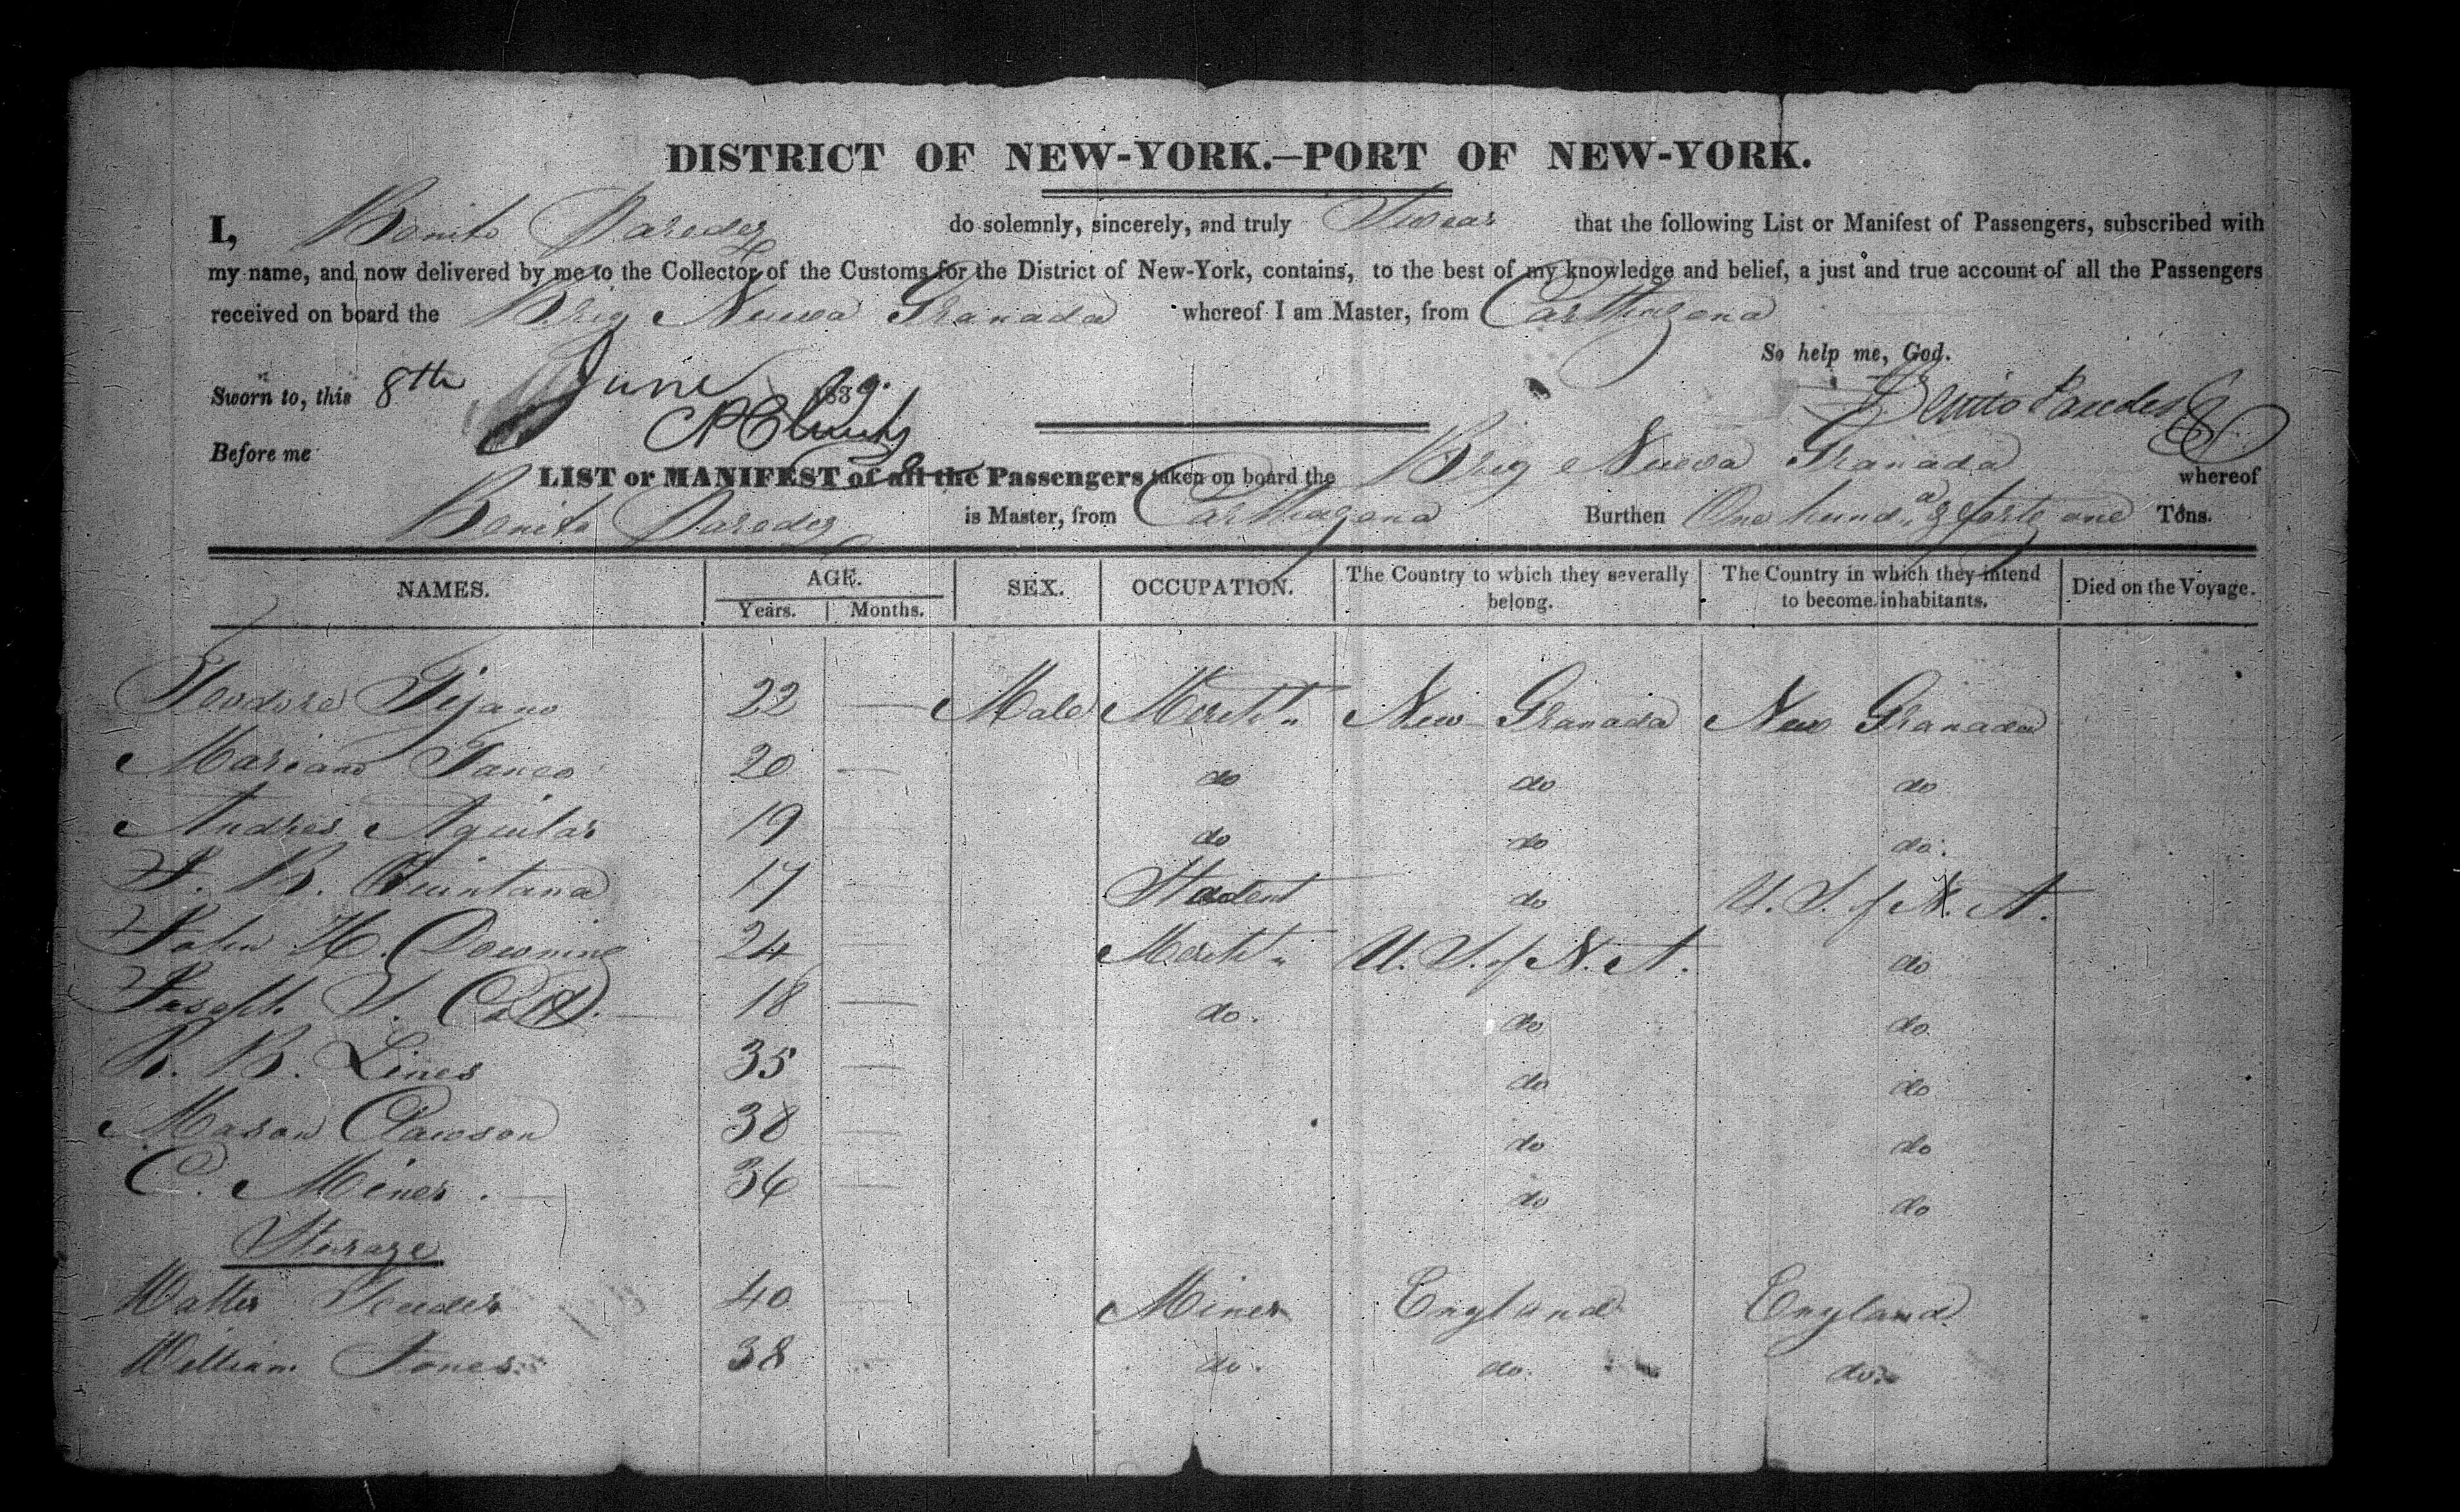 DISTRICT OF NEW-YORK.—PORT OF NEW-YORK.
I, Bonito Paredez do solemnly, sincerely, and truly Swear that the following List or Manifest of Passengers, subscribed with
my name, and now delivered by me to the Collector of the Customs for the District of New-York, contains, to the best of my knowledge and belief, a just and true account of all the Passengers
received on board the Brig Nueva Granada whereof I am Master, from Carthagena
So help me, God.
Sworn to, this 8th June 1839. Benito Paredes
Before me
LIST or MANIFEST of all the Passengers taken on board the Brig Nueva Granada whereof
Bonito Paredez is Master, from Carthagena Burthen One hundd & forty one Tons.
NAMES. AGE. SEX. OCCUPATION. The Country to which they severally belong. The Country in which they intend to become inhabitants. Died on the Voyage.
Years. Months.
Teodore Tijano 22 — Male Mercht " New Granada New Granada
Mariano Tanco 20 — do do do
Andres Aguilar 19 — do do do.
J. B. Quintana 17 — Student do U. S. of N. A.
John H. Downing 24 — Mercht " U. S. of N. A. do
Joseph S. 18 — do. do do
R. B. Lines 35 — do do
Mason Clawson 38 — do do
C. Miner. — 36 — do do
Storage
Walter 40 — Miner England England
William Jones. 38 do. do. do.